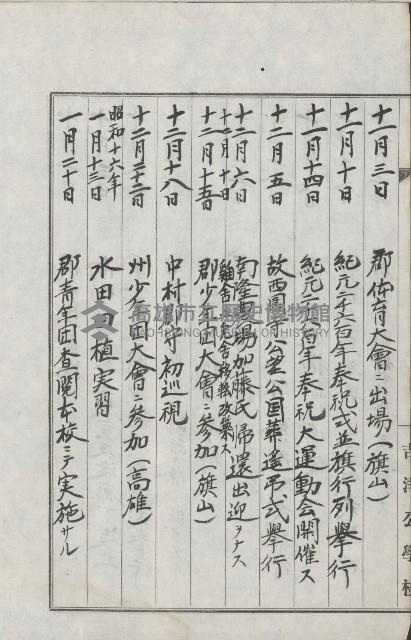 十一月三日　郡体育大會ニ出場（旗山）
十一月十日　紀元二千六百年奉祝式並旗行列擧行
十一月十四日　紀元二千六百年奉祝大運動会開催ス
十二月五日　故西園寺公望公国葬遙弔式擧行
十二月六日　南隆農場加藤氏帰還出迎ヲナス
十二月十日　鷄舎
十二月十五日　郡少年団大會ニ参加（旗山）
十二月十八日　中村郡守初巡視
十二月二十二日　州少年団大會ニ参加（高雄）
昭和十六年
一月十三日　水田田植実習
一月二十日　郡青年団査閲本校ニテ実施サル
公學校
高雄市立歷史博物館
KAOHSIUNG MUSEUM OF HISTORY